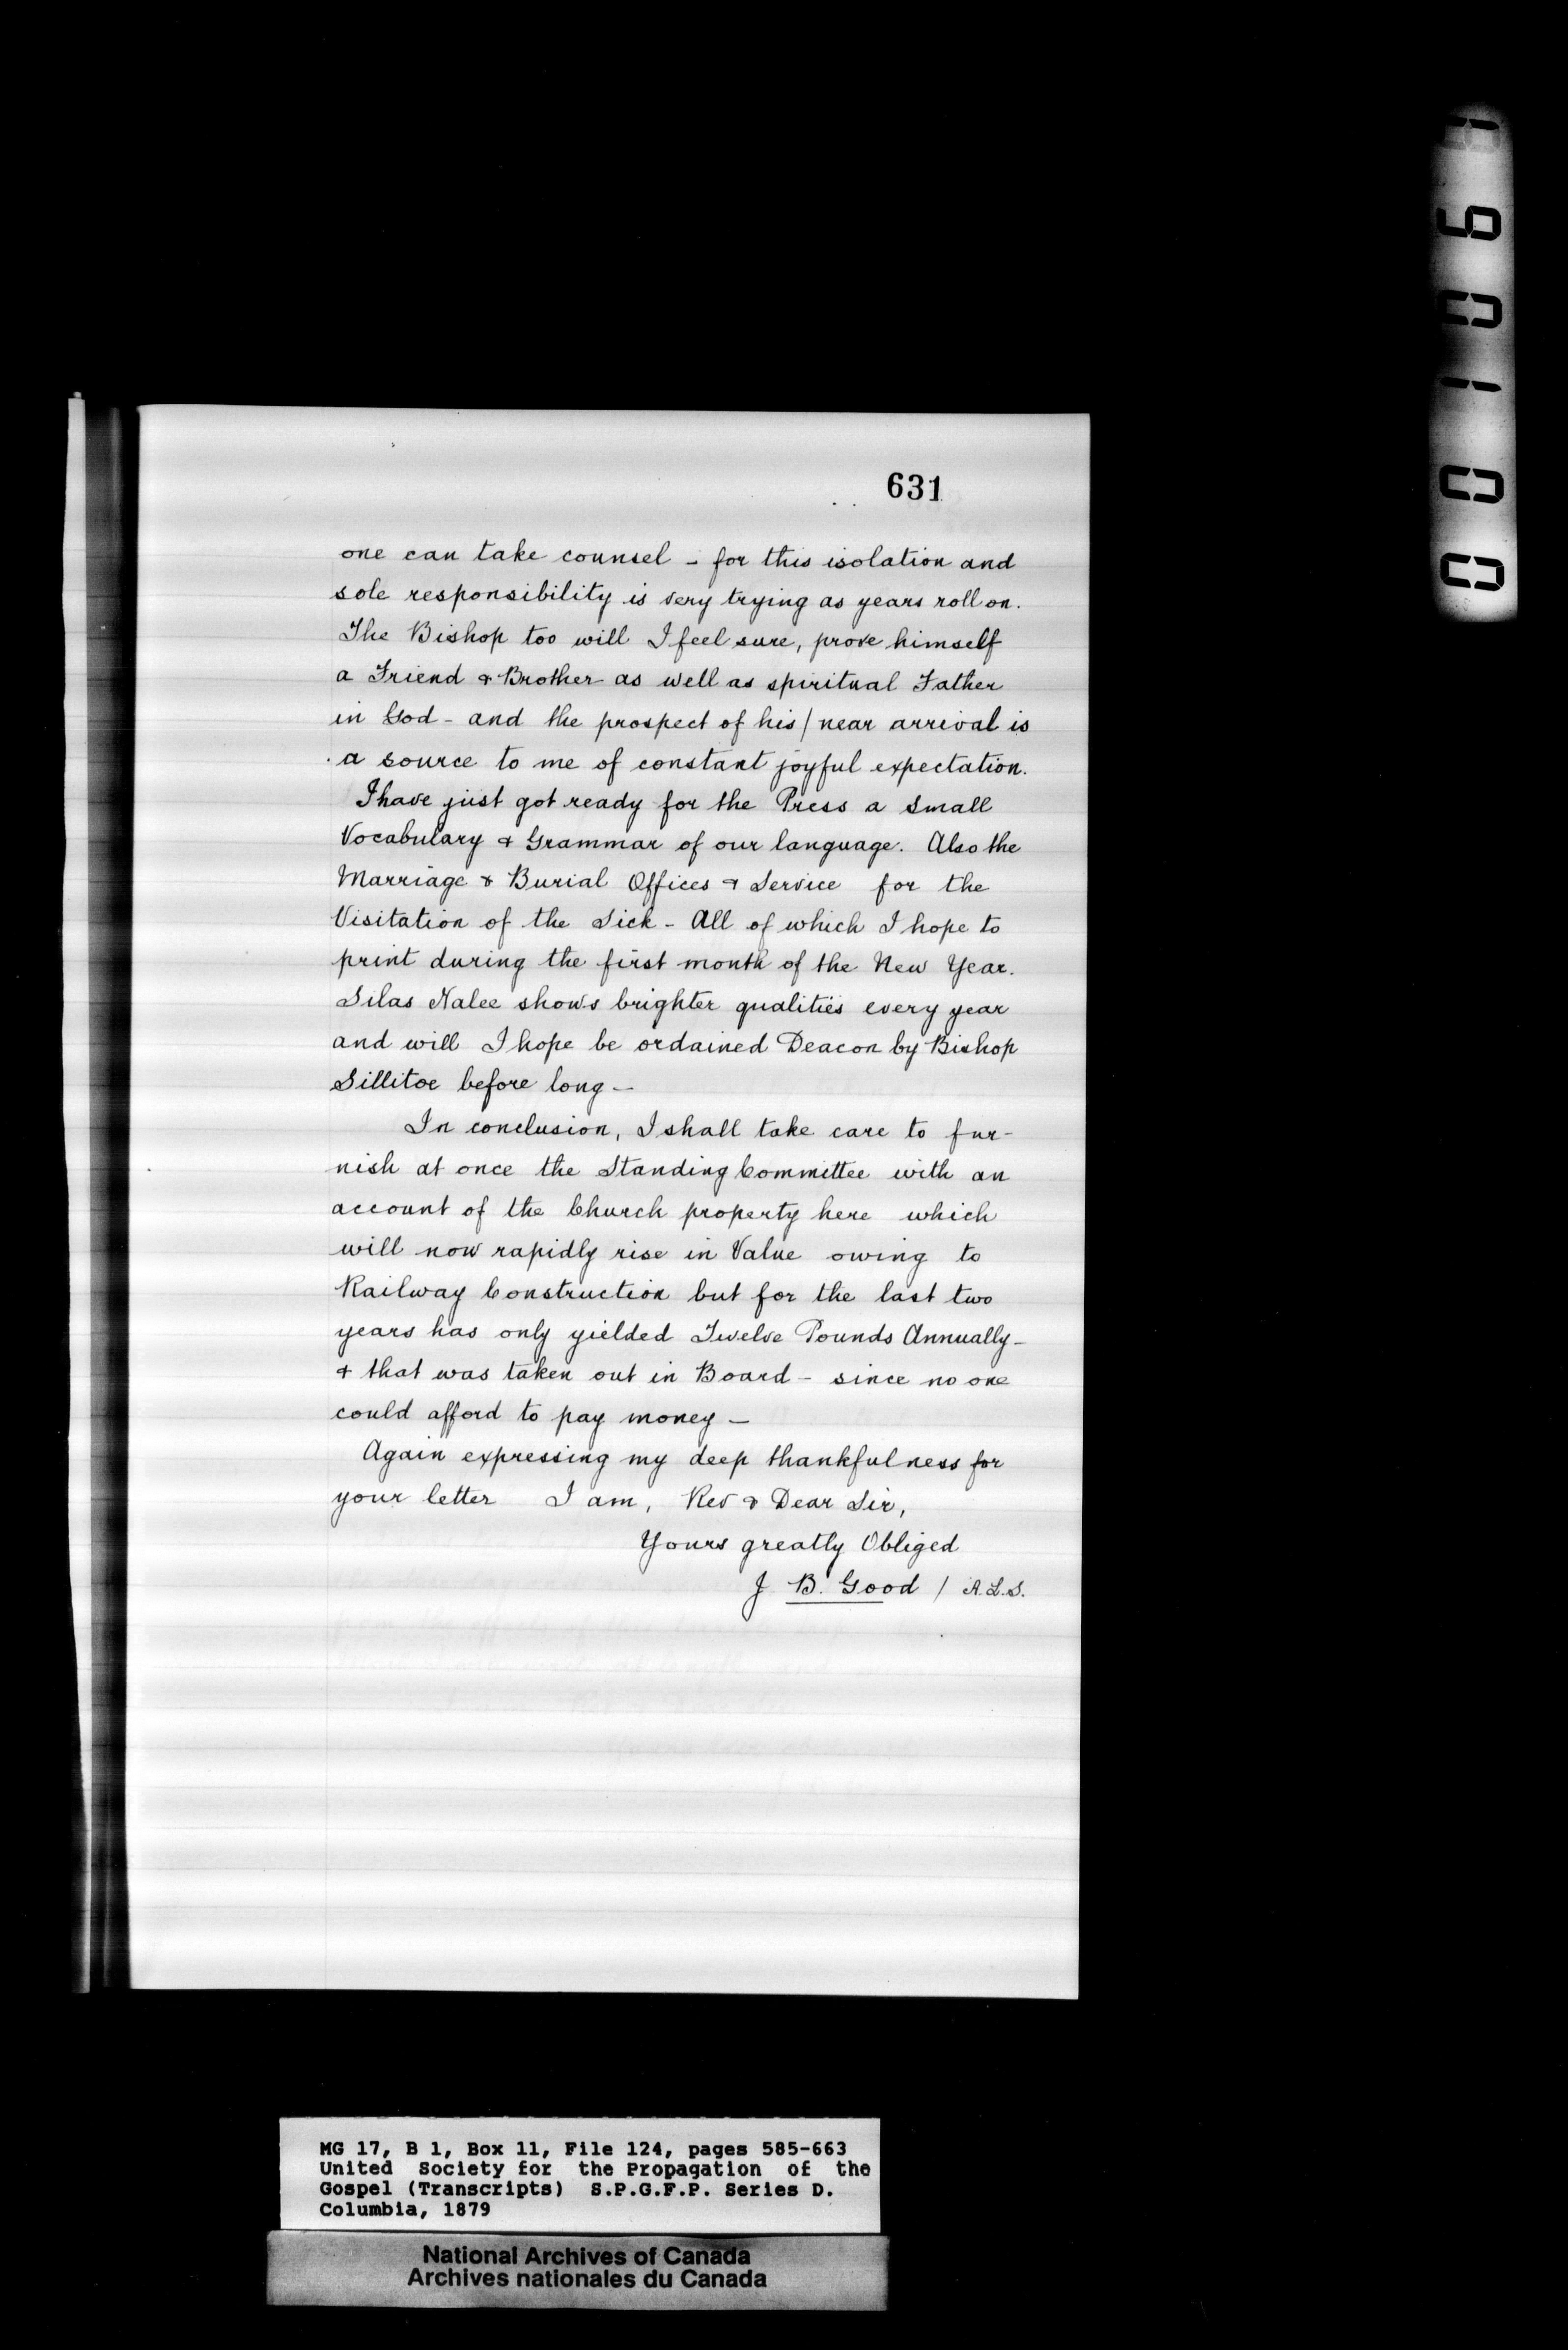 631
one can take counsel - for this isolation and
sole responsibility is very trying as years roll on.
The Bishop too will I feel sure, prove himself
a Friend & Brother as well as spiritual Father
in God - and the prospect of his / near arrival is
a source to me of constant joyful expectation.
I have just got ready for the Press a small
Vocabulary & Grammar of our language. Also the
Marriage & Burial Offices & Service for the
Visitation of the Sick - All of which I hope to
print during the first month of the New Year.
Silas Nalee shows brighter qualities every year
and will I hope be ordained Deacon by Bishop
Sillitoe before long -
In conclusion, I shall take care to fur-
nish at once the Standing Committee with an
account of the Church property here which
will now rapidly rise in Value owing to
Railway Construction but for the last two
years has only yielded Twelve Pounds Annually -
& that was taken out in Board - since no one
could afford to pay money -
Again expressing my deep thankfulness for
your letter I am, Rev & Dear Sir,
Yours greatly Obliged
J B. Good / A.L.S.
MG 17, B 1, Box 11, File 124, pages 585-663
United Society for the Propagation of the
Gospel (Transcripts) S.P.G.F.P. Series D.
Columbia, 1879
National Archives of Canada
Archives nationales du Canada